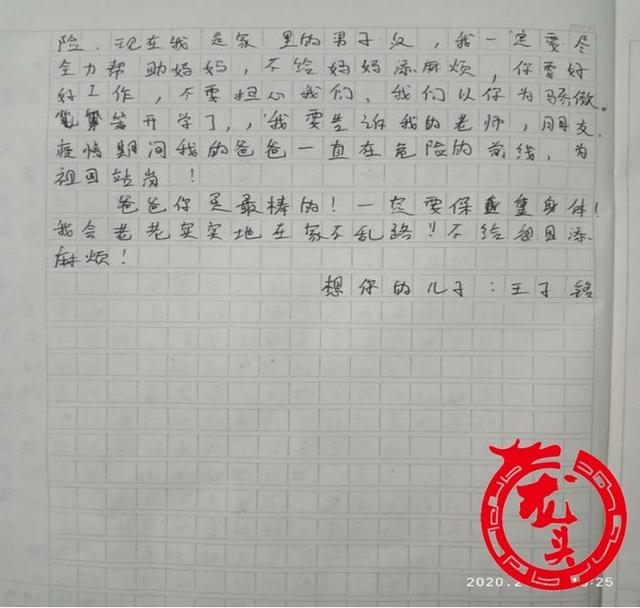 险、现在我是家里的男子汉，我一定要尽
全力帮助妈妈，不给妈妈添麻烦，你要好
好工作，不要担心我们，我们以你为骄傲。
等开学了，我要告诉我的老师，朋友，
疫情期间我的爸爸一直在危险的前线，为
祖国站岗！
爸爸你是最棒的！一定要保重身体！
我会老老实实地在家不乱跑！！不给祖国添
麻烦！
想你的儿子：王子铭
龙头
2020.2
:25